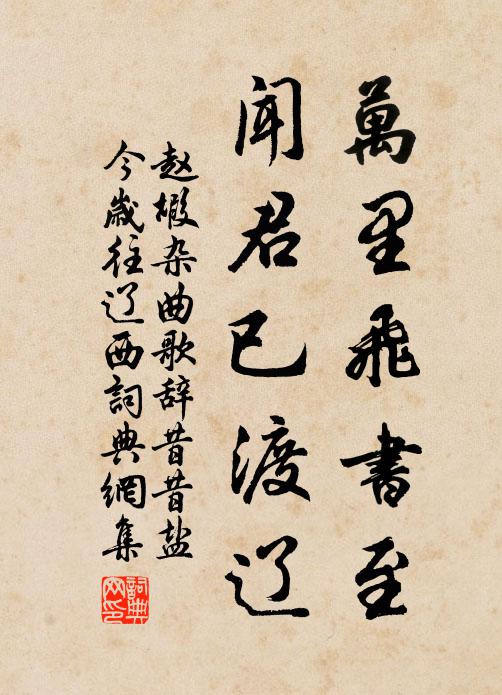 萬里飛書至
聞君已渡辽
赵嘏杂曲歌辞昔昔盐
今歲往辽西詞典網集
詞典网印